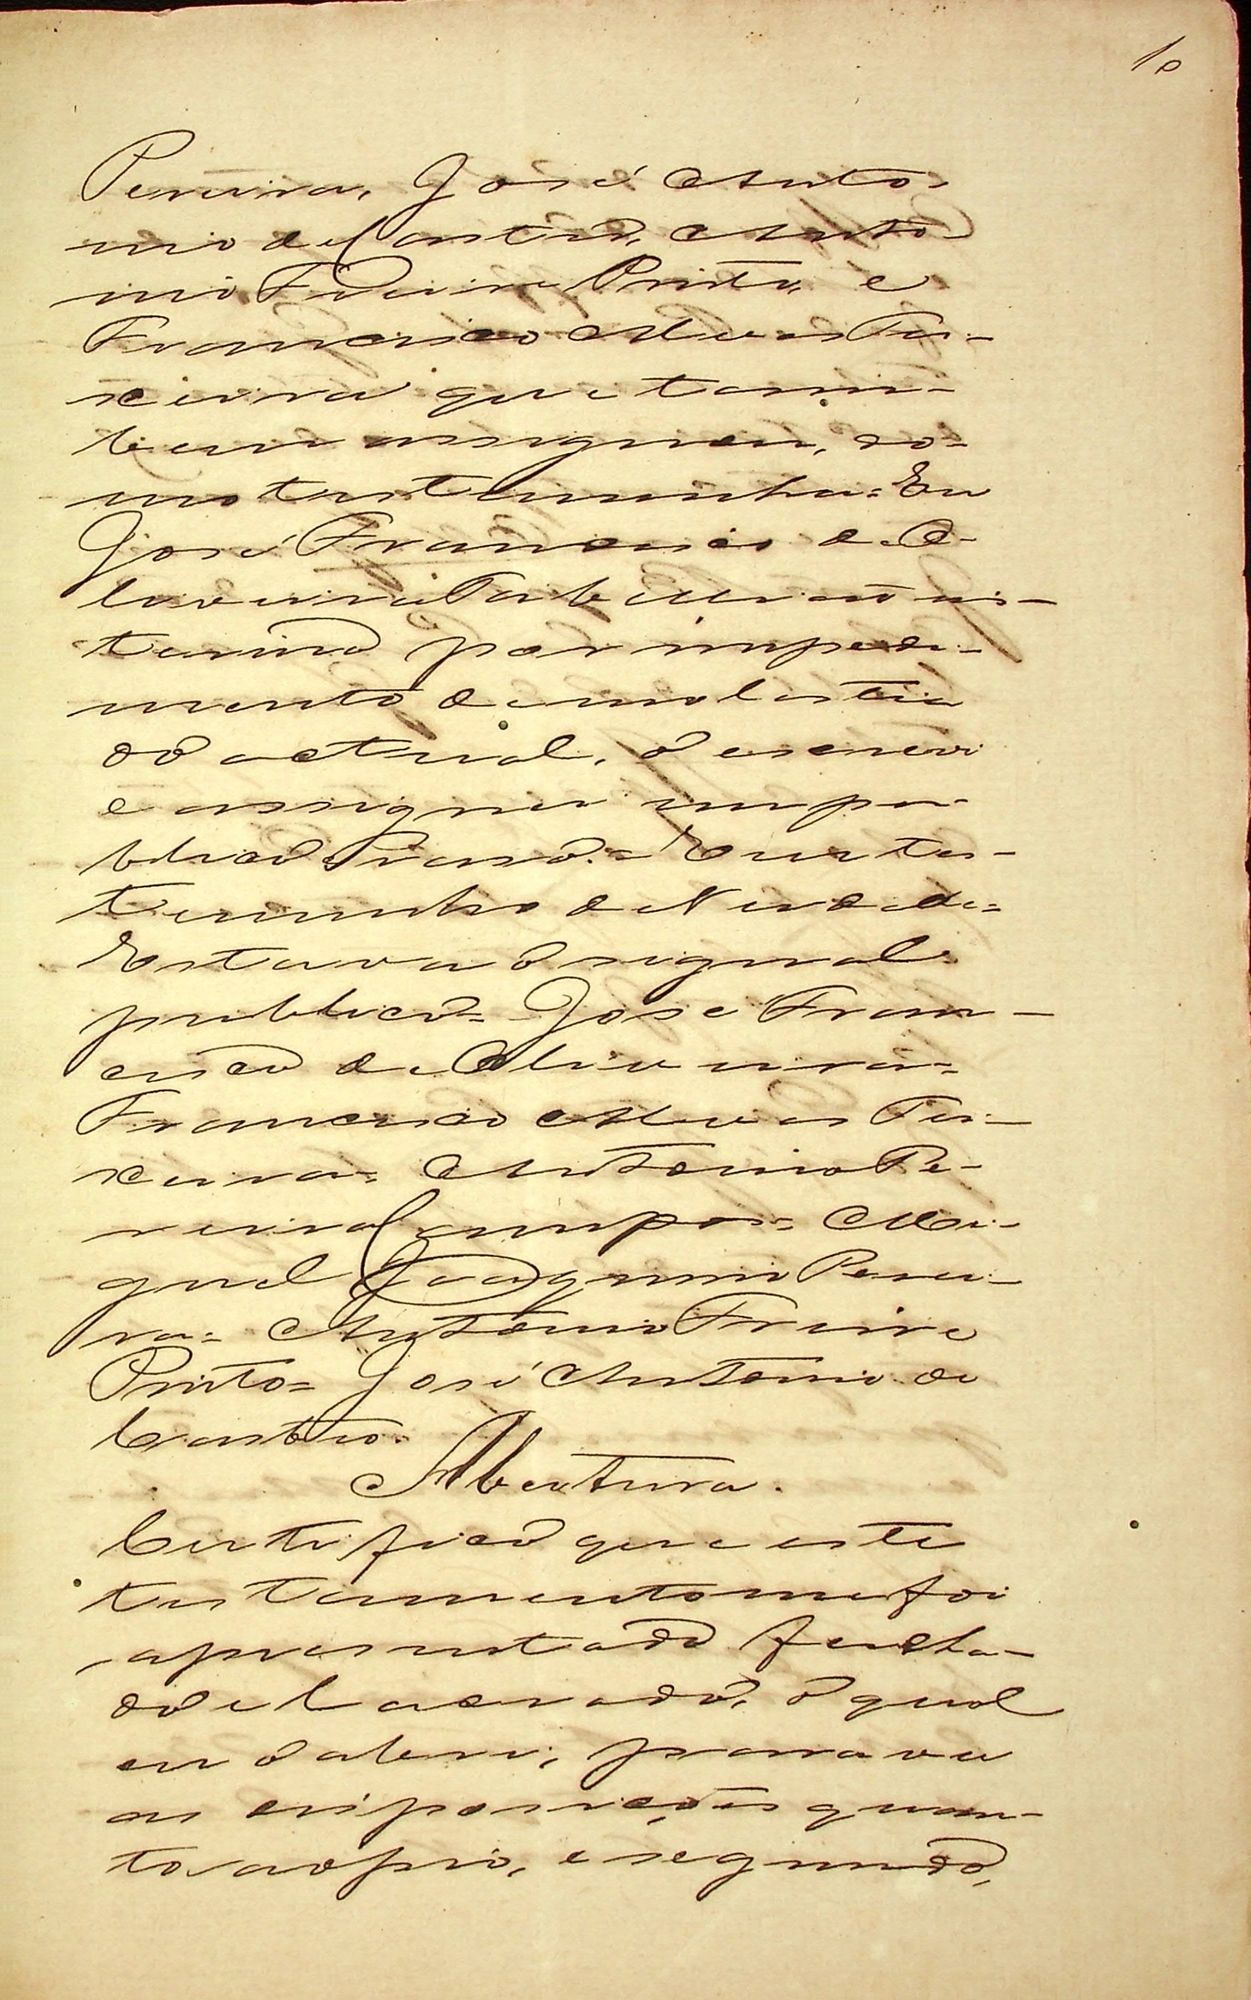 10
Pereira, José Anto-
nio de Castro, Anto-
nio Freire Pinto, e
Francisco Alves Tei-
xeira que tam-
bem assignou, co-
mo testemunha = Eu
José Francisco de O-
liveira Tabellião in-
terino por impedi-
mento de molestia
do actual, o escrevi
e assignei em pu-
blico e raso. = Em tes-
temunho de verdade =
Estava o signal
publico = José Fran-
cisco de Oliveira =
Francisco Alves Tei-
xeira = Antonio Pe-
reira Campos = Mi-
guel Joaquim Perei-
ra = Antonio Freire
Pinto = José Antonio de
Castro.
Abertura.
Certifico que este
testamento me foi
apresentado fecha-
do e lacrado, o qual
eu o abri, para ver
as disposições quan-
to ao pio, e segundo,